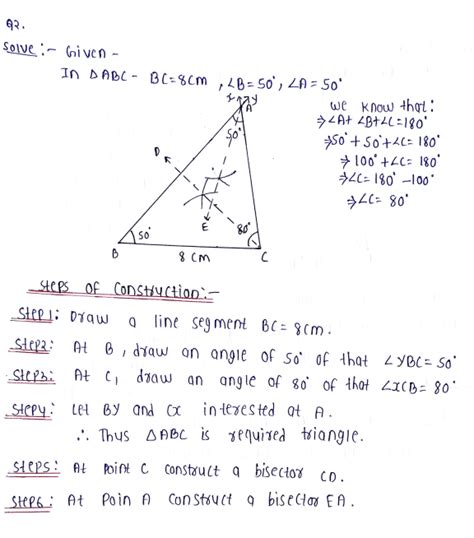 Q2.
Solve:- Given -
In △ABC - BC=8cm , ∠B=50°, ∠A=50°
we know that:
⇒∠A+ ∠B+∠C=180°
⇒50°+50°+∠C=180°
⇒100°+∠C=180°
⇒∠C=180°-100°
⇒∠C=80°
x y
A
50°
D
E
50°
80°
B
8 CM
C
Steps of construction:-
Step1: Draw a line segment BC=8cm.
Step2: At B, draw an angle of 50° of that ∠YBC=50°
Step3: At C, draw an angle of 80° of that ∠XCB=80°
Step4: Let BY and CX interested at A.
∴ Thus △ABC is required triangle.
Step5: At Point C construct a bisector CD.
Step6: At Poin A construct a bisector EA.